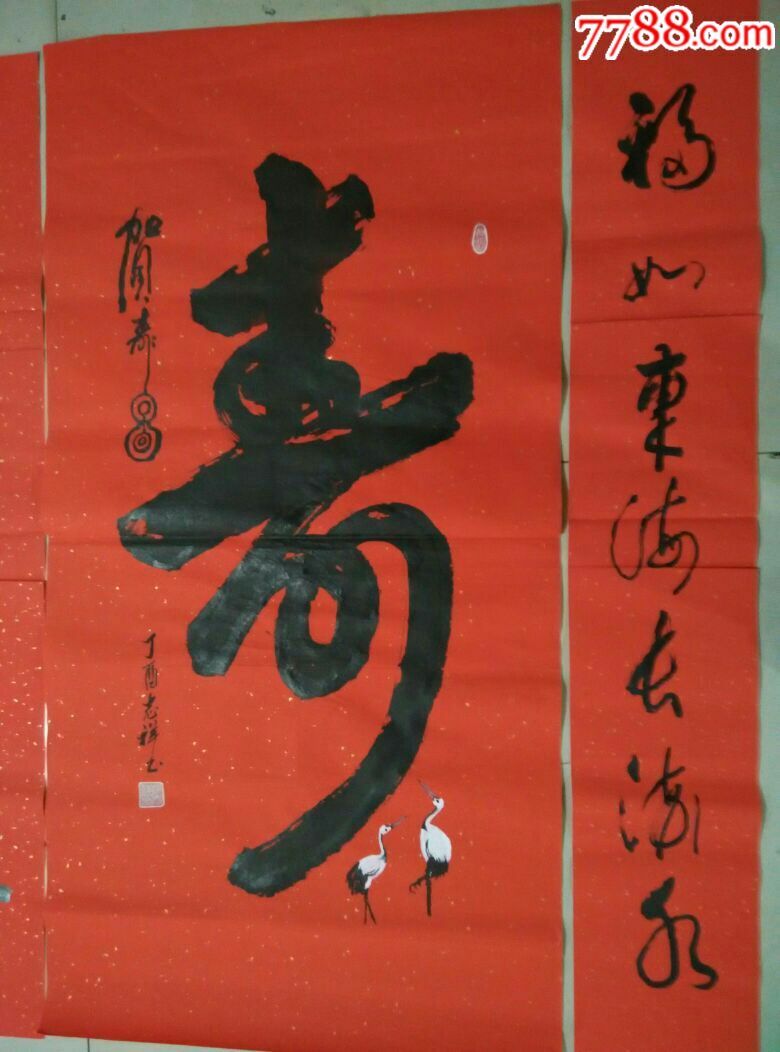 7788.com
福如東海長流水
壽
賀壽
丁酉志祥书